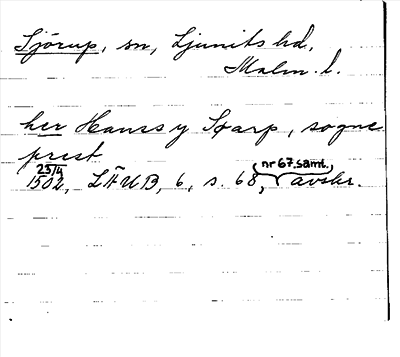 Sjörup, sn, Ljunits hd,
Malm. l.
her Hanss y Sxarp, sogne
prest
25/4
1502, LÄUB, 6, s. 68, nr 67, saml. avskr.